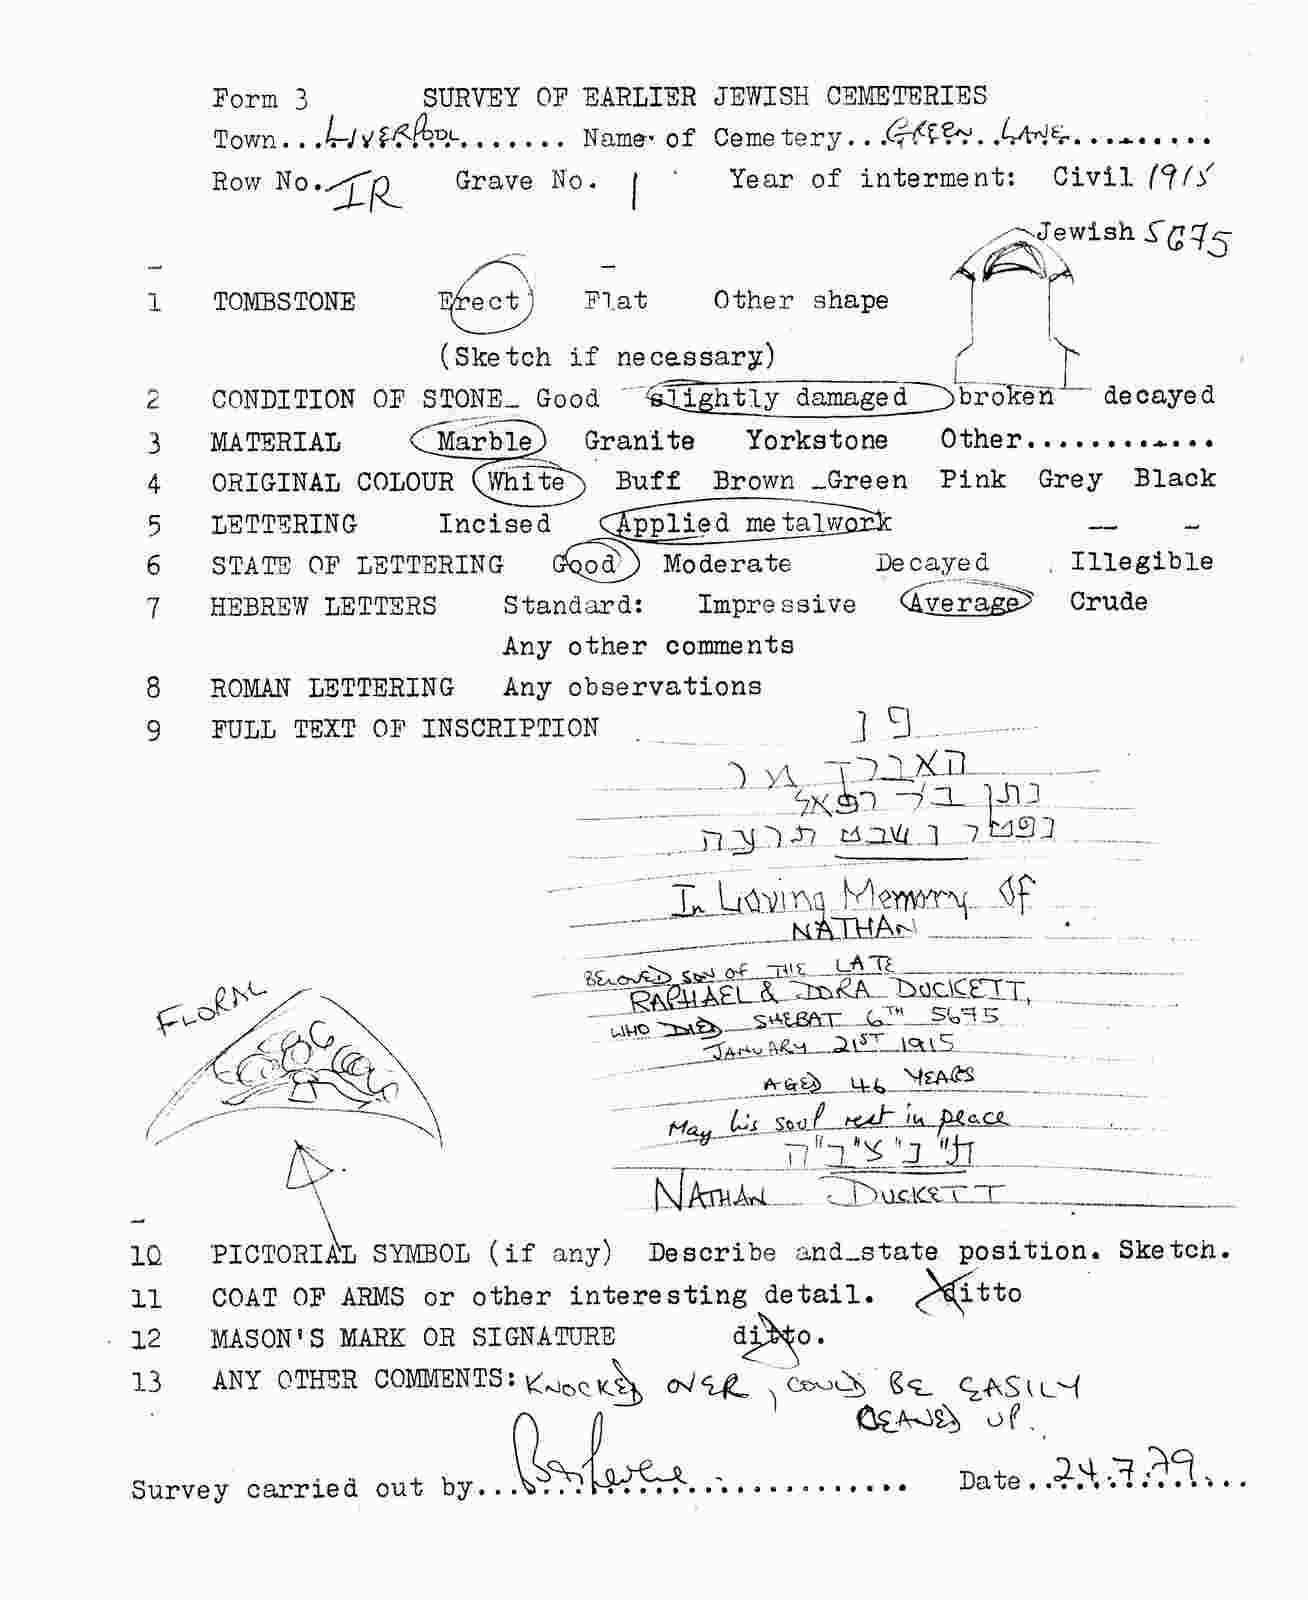 Form 3 SURVEY OF EARLIER JEWISH CEMETERIES
Town...LIVERPOOL....... Name of Cemetery...GREEN LANE.........
Row No. IR Grave No. 1 Year of interment: Civil 1915
Jewish 5675
1 TOMBSTONE Erect Flat Other shape
(Sketch if necessary)
2 CONDITION OF STONE Good slightly damaged broken decayed
3 MATERIAL Marble Granite Yorkstone Other............
4 ORIGINAL COLOUR White Buff Brown Green Pink Grey Black
5 LETTERING Incised Applied metalwork
6 STATE OF LETTERING Good Moderate Decayed Illegible
7 HEBREW LETTERS Standard: Impressive Average Crude
Any other comments
8 ROMAN LETTERING Any observations
9 FULL TEXT OF INSCRIPTION
פ נ
נתן בר רפאל
נפטר ו שבט תרעה
In Loving Memory Of
NATHAN
BELOVED SON OF THE LATE
RAPHAEL & DORA DUCKETT,
WHO DIED SHEBAT 6TH 5675
JANUARY 21ST 1915
AGED 46 YEARS
May his soul rest in peace
ת"נ"צ"ב"ה
NATHAN DUCKETT
FLORAL
10 PICTORIAL SYMBOL (if any) Describe and state position. Sketch.
11 COAT OF ARMS or other interesting detail. ditto
12 MASON'S MARK OR SIGNATURE ditto.
13 ANY OTHER COMMENTS: KNOCKED OVER, COULD BE EASILY
CLEANED UP.
Survey carried out by........................... Date..24.7.79....